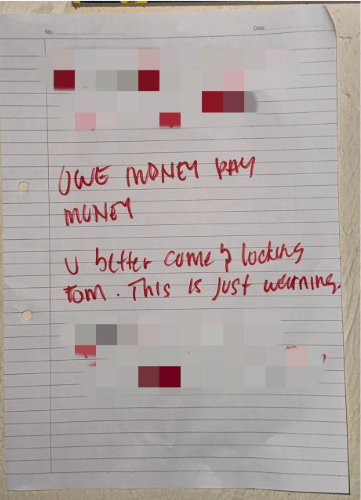 Date
OWE MONEY PAY
MONEY
U better come &
Tom. This is just warning.